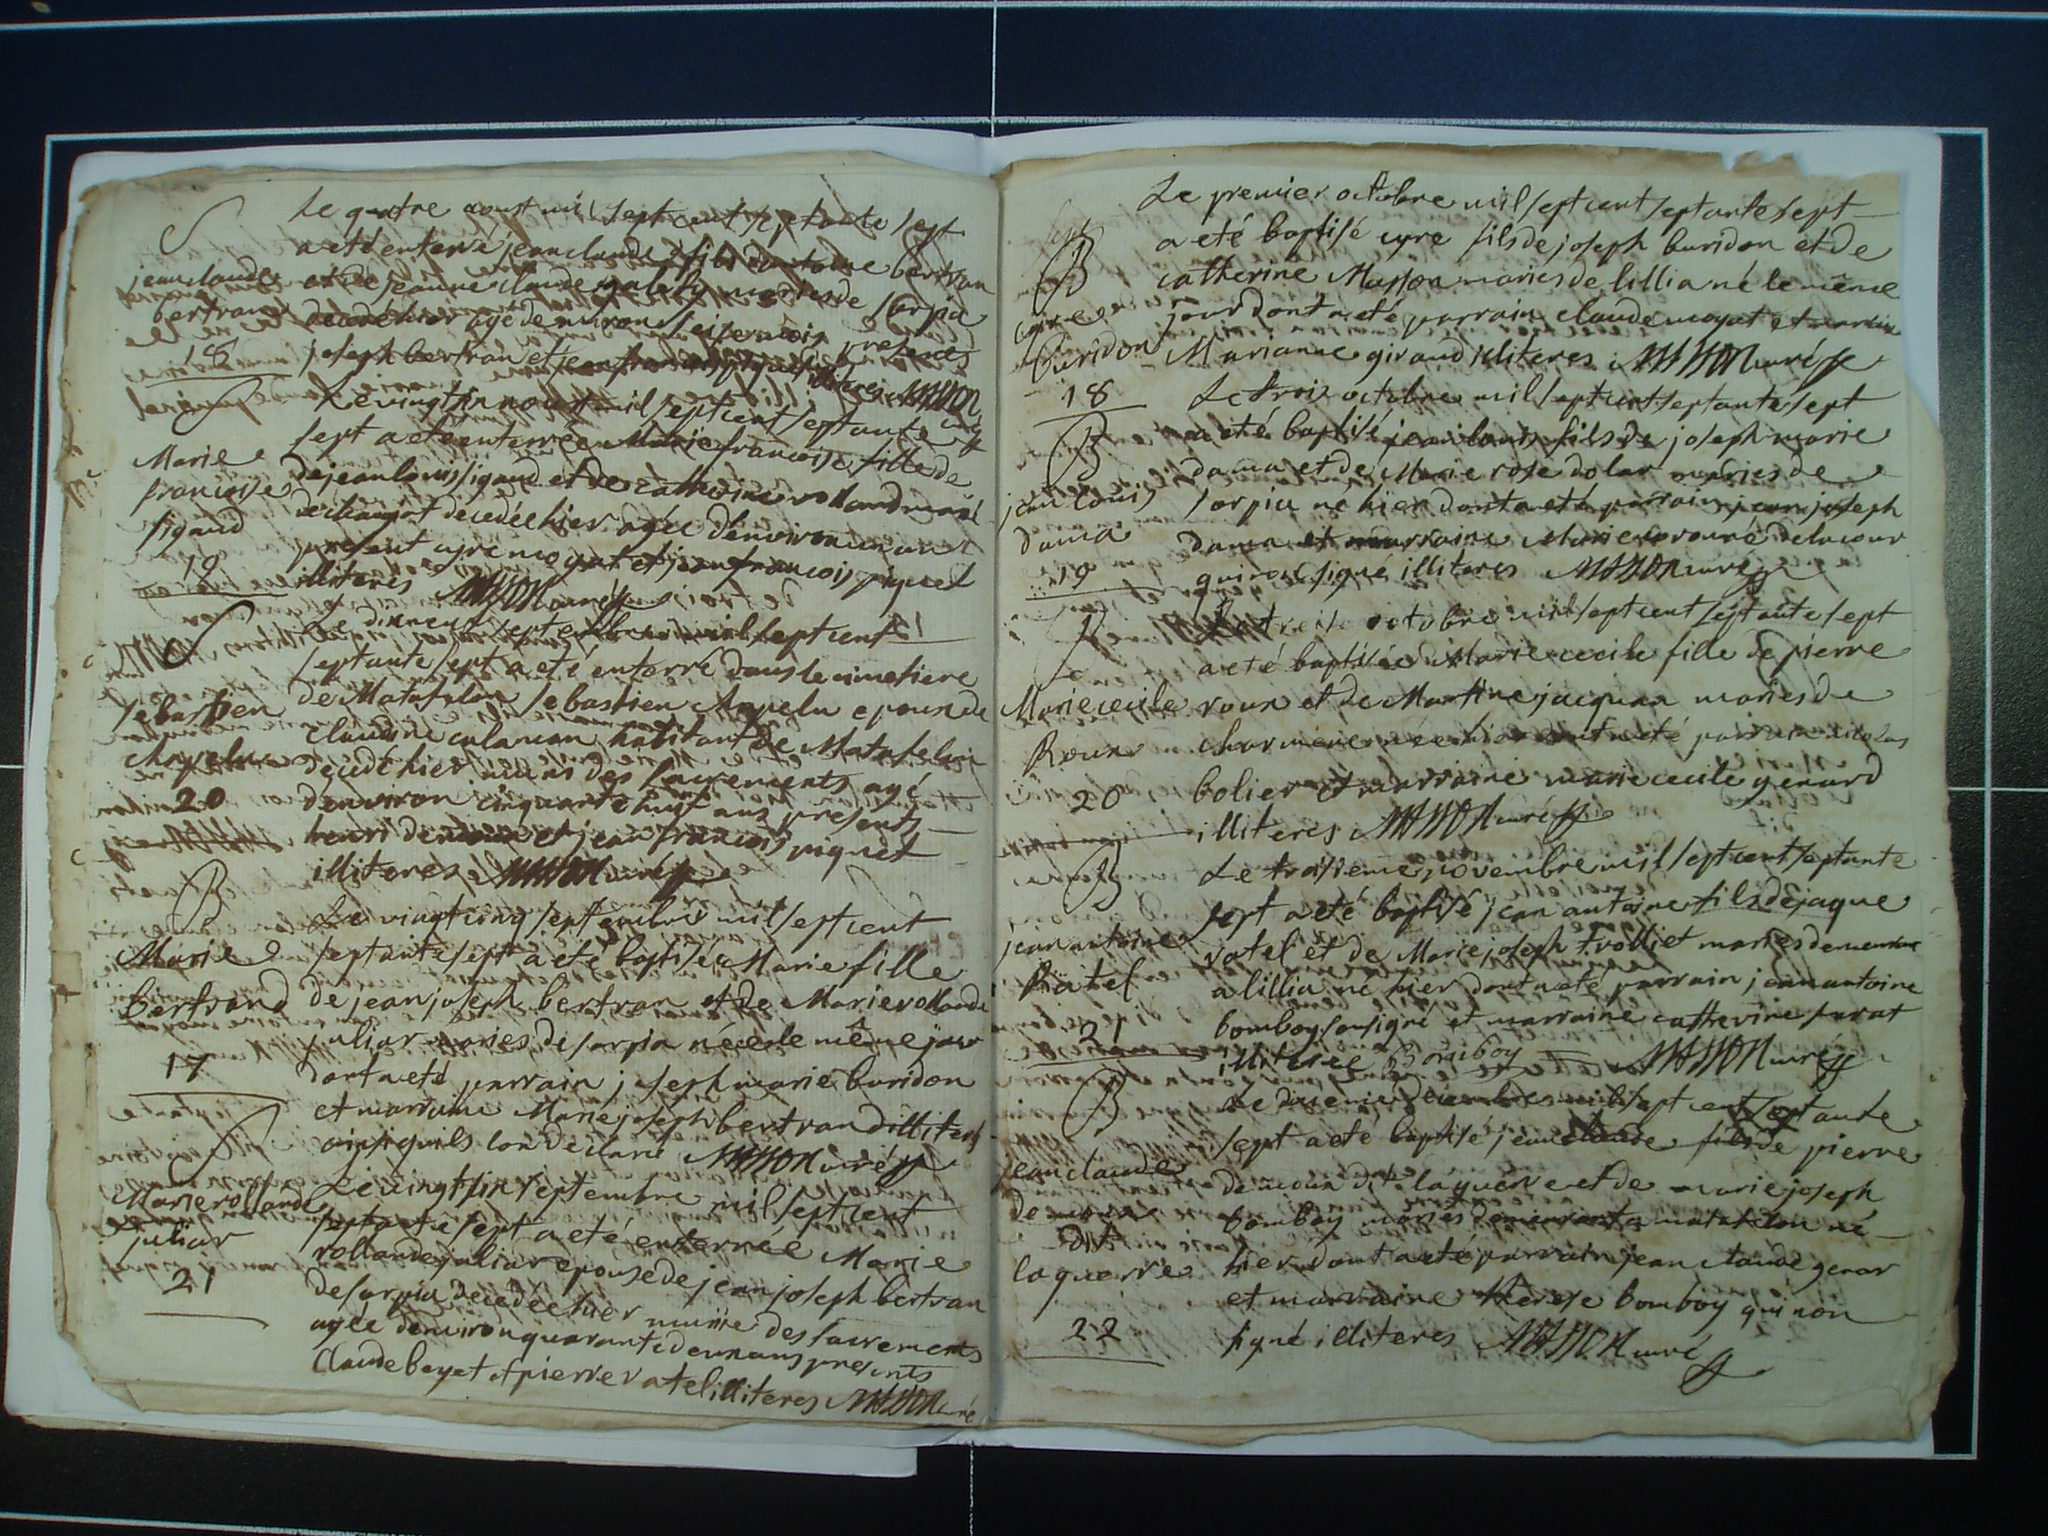 S
jean claude
bertrand
18
Le quatre aoust mil sept cent septante sept
a eté enterré jean claude fils d'antoine bertran
et de jeanne claude galety maries de sorpia
decedé hier agé d'environ six mois presents
joseph bertran et jean francois piquet illiteres MASSON curé
Marie
francoise
sigaud
19
Le vingt six aoust mil sept cent septante
sept a eté enterrée Marie francoise fille de
de jean louis sigaud et de catherine rolland mariés
decedée hier agée d'environ un an
present cyre moyat et jean francois piquet
illiteres MASSON curé
S
sebastien
chapelu
20
Le dixneuf septembre mil sept cent
septante sept a eté enterré dans le cimetiere
de Matafelon sebastien chapelu epoux de
claudine habitant de Matafelon
decedé hier munis des sacrements agé
d'environ cinquante huit ans presents
henri et jean francois piquet
illiteres MASSON curé
B
Marie
bertrand
17
Le vingt cinq septembre mil sept cent
septante sept a eté baptisée Marie fille
de jean joseph bertran et de Marie rollande
juliar maries de sorpia née le même jour
dont a eté parrain joseph marie buridon
et marraine Marie joseph bertrand illiteres
ainsi quils lon declaré MASSON curé
S
Marie rollande
juliar
21
Le vingt six septembre mil sept cent
septante sept a eté enterrée Marie
rollande juliar epouse de jean joseph bertran
de sorpia decedée hier munie des sacrements
agée d'environ quarante deux ans presents
Claude boyat et pierre vatel illiteres MASSON curé
B
cyre
buridon
18
Le premier octobre mil sept cent septante sept
a eté baptisé cyre fils de joseph buridon et de
catherine Masson maries de lillia né le même
jour dont a eté parrain claude moyat et marraine
Marianne giraud illiteres MASSON curé
B
jean louis
dama
19
Le trois octobre mil sept cent septante sept
a eté baptisé jean louis fils de joseph marie
dama et de Marie rose dolar maries de
sorpia né hier dont a eté parrain jean joseph
dama et marraine Marie delacour
qui non signé illiteres MASSON curé
B
Marie cecile
Roux
20
Le treise octobre mil sept cent septante sept
a eté baptisée Marie cecile fille de pierre
roux et de Martine jacquan maries de
charmine née hier dont a eté parrain nicolas
bolier et marraine marie cecile genard
illiteres MASSON curé
B
jean antoine
Ratel
21
Le troisieme novembre mil sept cent septante
sept a eté baptisé jean antoine fils de jaque
ratel et de Marie joseph trolliet maries demeurant
a lillia né hier dont a eté parrain jean antoine
bomboy sousigné et marraine catherine
illiteree Bomboy MASSON curé
B
jean claude
de moux
dit
laguerre
22
Le decembre mil sept cent septante
sept a eté baptisé jean claude fils de pierre
demoux dit laguerre et de marie joseph
bomboy maries demeurant a matafelon né
hier dont a eté parrain jean claude genar
et marraine therese bomboy qui non
signé illiteres MASSON curé